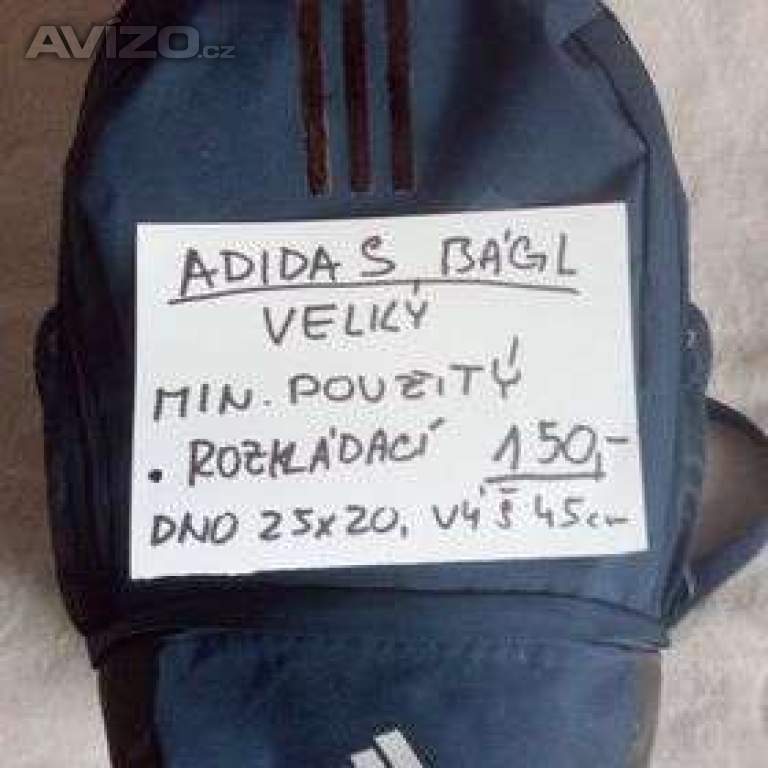 AVÍZO.cz
ADIDAS BÁGL
VELKÝ
MIN. POUZITÝ
• ROZKLÁDACÍ 150,-
DNO 25x20, VÝŠ 45cm